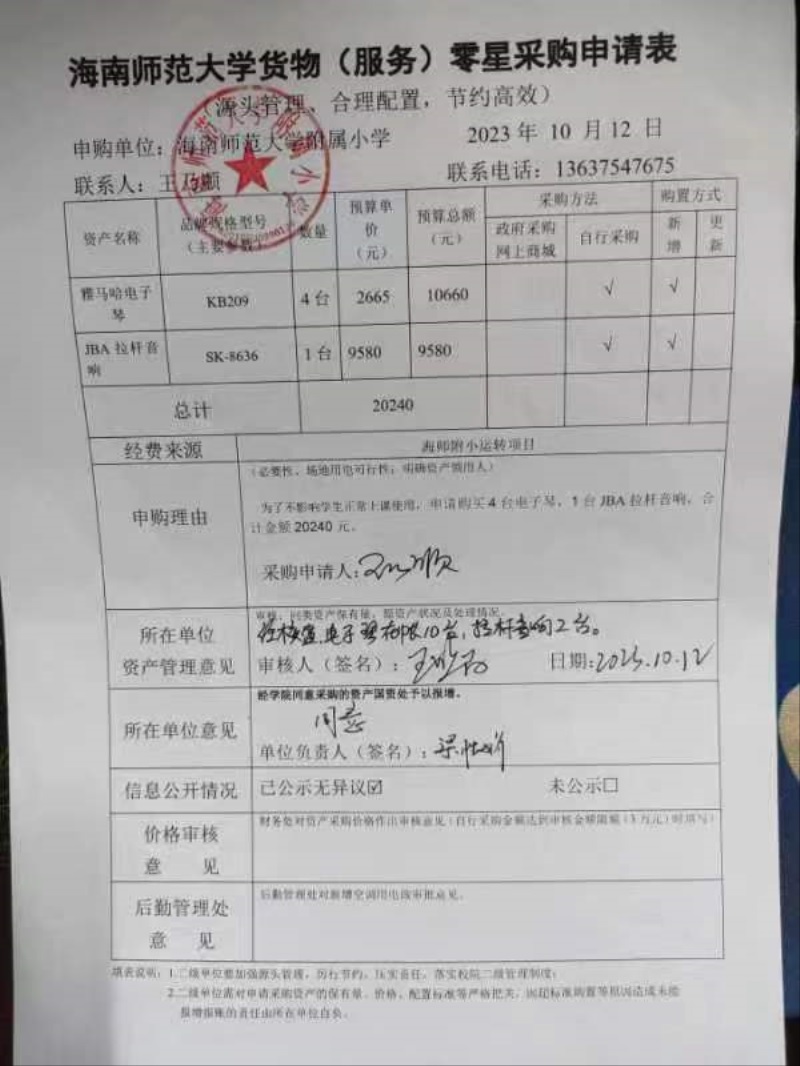 海南师范大学货物（服务）零星采购申请表
（源头管理、合理配置，节约高效）
申购单位：海南师范大学附属小学 2023 年 10 月 12 日
联系人：王乃顺 联系电话：13637547675
资产名称 品牌规格型号（主要参数） 数量 预算单价（元） 预算总额（元） 采购方法 购置方式
政府采购网上商城 自行采购 新增 更新
雅马哈电子琴 KB209 4 台 2665 10660 √ √
JBA 拉杆音响 SK-8636 1 台 9580 9580 √ √
总计 20240
经费来源 海师附小运转项目
（必要性、场地用电可行性；明确资产领用人）
申购理由
为了不影响学生正常上课使用，申请购买 4 台电子琴，1 台 JBA 拉杆音响，合
计金额 20240 元。
采购申请人：王乃顺
审核：同类资产保有量，原资产状况及处理情况。
所在单位
资产管理意见
经核查，电子琴有限10台，拉杆音响2台。
审核人（签名）： 日期：2023.10.12
经学院同意采购的资产国资处予以报增。
所在单位意见
同意
单位负责人（签名）：
信息公开情况 已公示无异议☑ 未公示☐
价格审核
意 见
财务处对资产采购价格作出审核意见（自行采购金额达到审核金额限额（3 万元）时填写）
后勤管理处
意 见
后勤管理处对新增空调用电做审批意见。
填表说明：1.二级单位要加强源头管理，厉行节约，压实责任，落实校院二级管理制度；
2.二级单位需对申请采购资产的保有量、价格、配置标准等严格把关，因超标准购置等原因造成未能
报增报账的责任由所在单位自负。